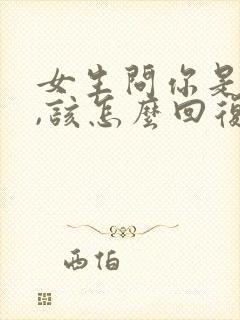 女生問你是
,該怎麼回復
西伯